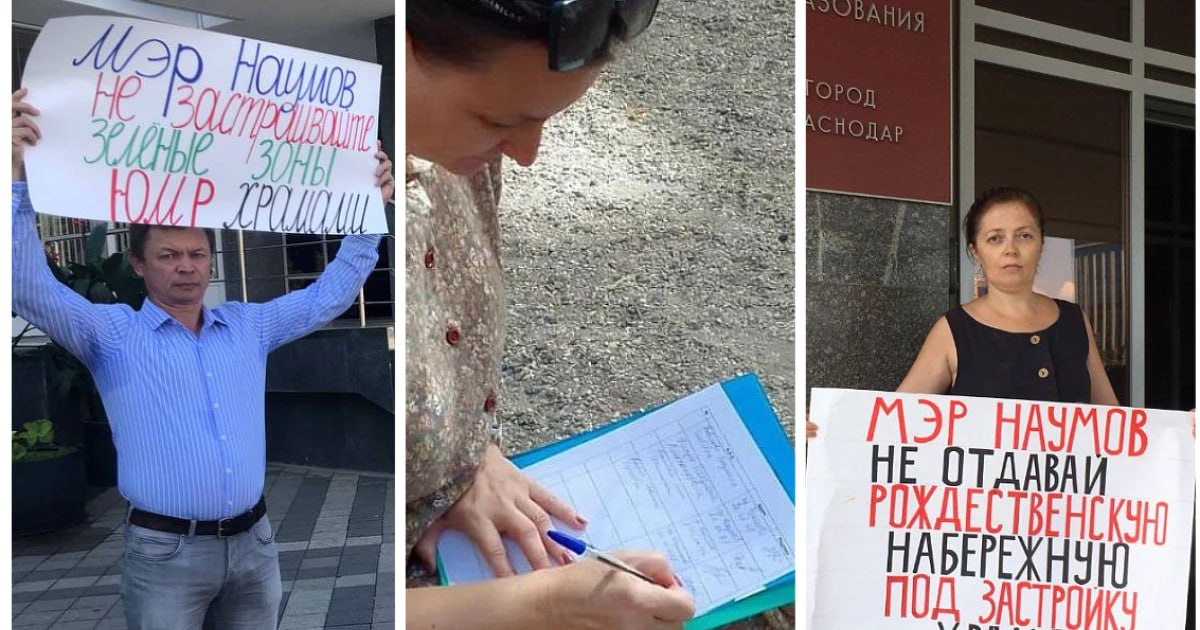 Мэр Наумов
не застраивайте
зелёные зоны
ЮМР храмами
АЗОВАНИЯ
ГОРОД
АСНОДАР
МЭР НАУМОВ
НЕ ОТДАВАЙ
РОЖДЕСТВЕНСКУЮ
НАБЕРЕЖНУЮ
ПОД ЗАСТРОЙКУ